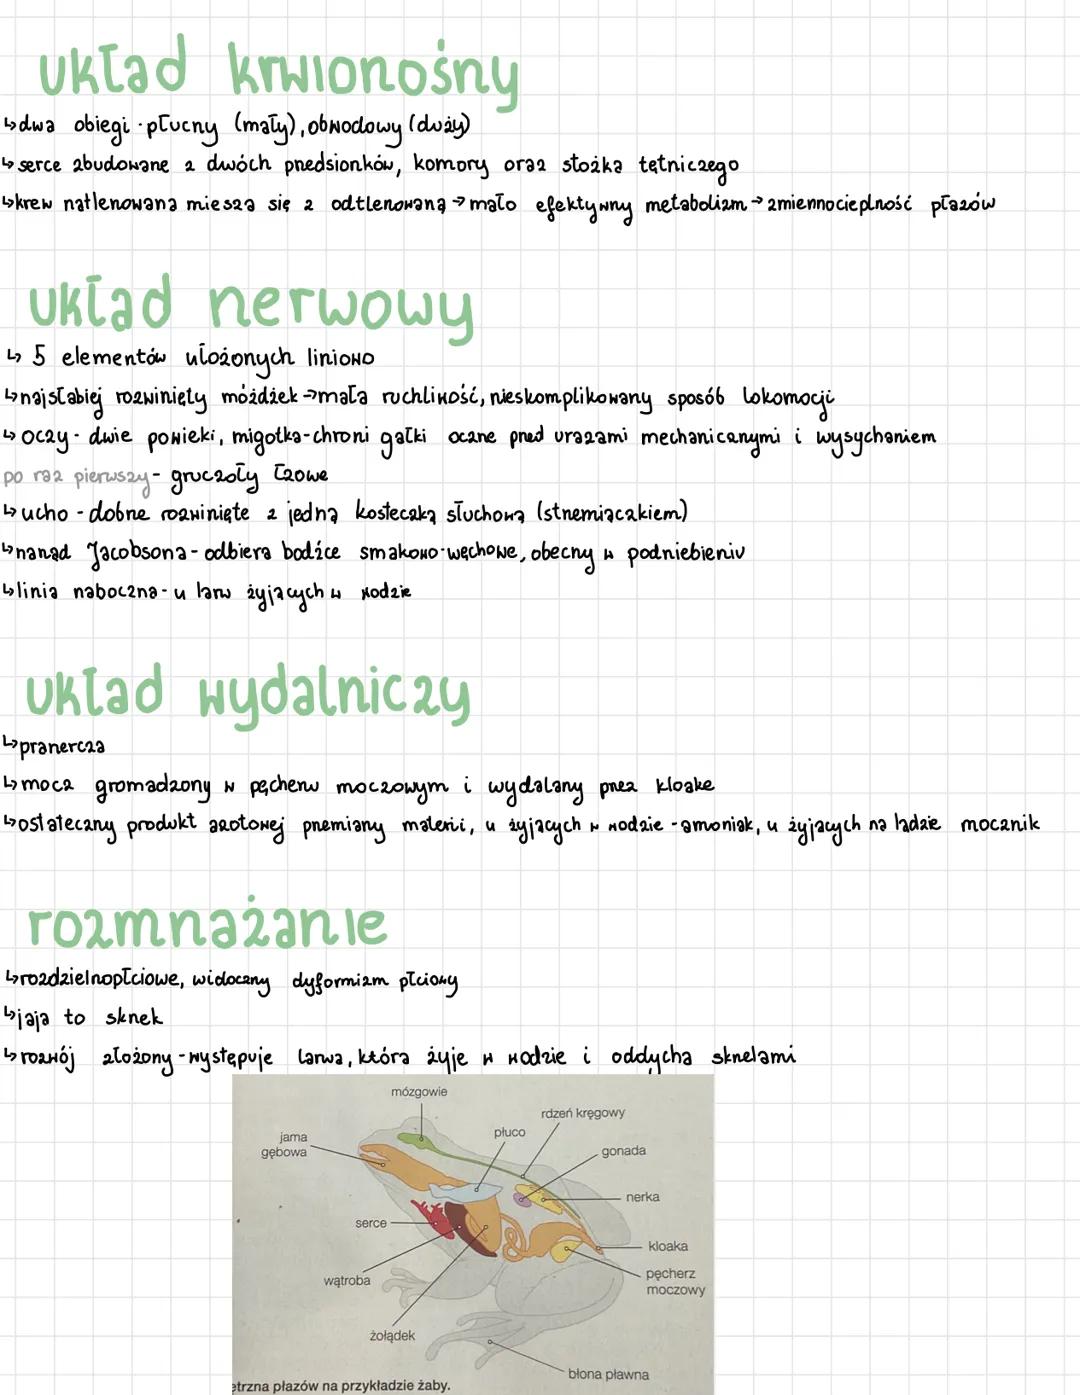 układ krwionośny
↳dwa obiegi - płucny (mały), obwodowy (duży)
↳serce zbudowane z dwóch przedsionków, komory oraz stożka tętniczego
↳krew natlenowana miesza się z odtlenowaną → mało efektywny metabolizm → zmiennocieplność płazów
układ nerwowy
↳ 5 elementów ułożonych liniowo
↳najsłabiej rozwinięty móżdżek → mała ruchliwość, nieskomplikowany sposób lokomocji
↳oczy - dwie powieki, migotka-chroni gałki oczne przed urazami mechanicznymi i wysychaniem
po raz pierwszy- gruczoły łzowe
↳ucho - dobrze rozwinięte z jedną kosteczką słuchową (strzemiączkiem)
↳narząd Jacobsona - odbiera bodźce smakowo-węchowe, obecny w podniebieniu
↳linia naboczna- u larw żyjących w wodzie
układ wydalniczy
↳pranercza
↳mocz gromadzony w pęcherzu moczowym i wydalany przez kloakę
↳ostateczny produkt azotowej przemiany materii, u żyjących w wodzie -amoniak, u żyjących na lądzie mocznik
rozmnażanie
↳rozdzielnopłciowe, widoczny dyformizm płciowy
↳jaja to skrzek
↳rozwój złożony - występuje larwa, która żyje w wodzie i oddycha skrzelami
mózgowie
rdzeń kręgowy
płuco
jama
gębowa
gonada
nerka
serce
kloaka
wątroba
pęcherz
moczowy
żołądek
błona pławna
etrzna płazów na przykładzie żaby.